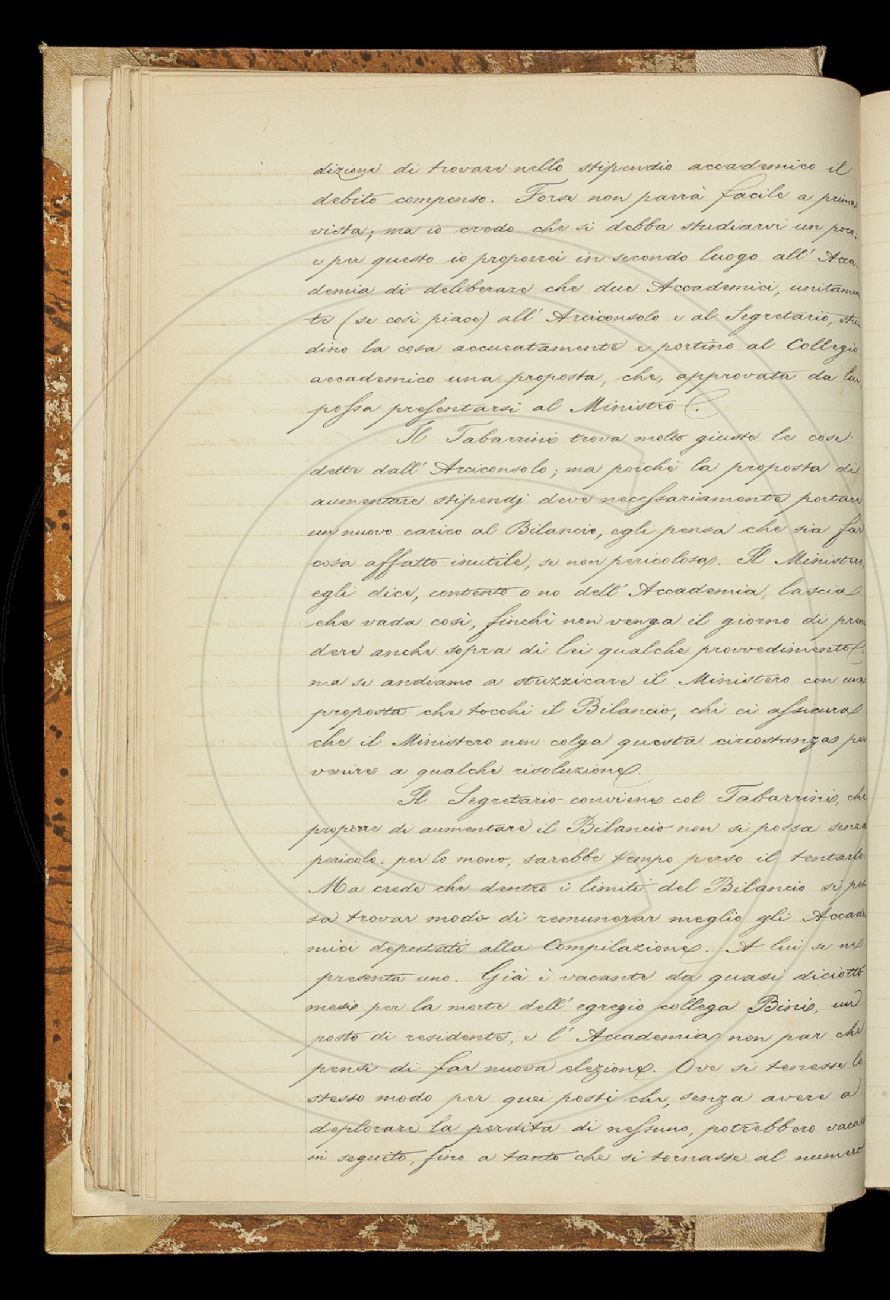 dizione di trovare nello stipendio accademico il
debito compenso. Forse non parrà facile a prima
vista; ma io credo che si debba studiarvi un poco:
e per questo io proporrei in secondo luogo all' Acca-
demia di deliberare che due Accademici, unitamen
te (se così piace) all' Arciconsolo e al Segretario, stu
dino la cosa accuratamente e portino al Collegio
accademico una proposta, che, approvata da lui,
possa presentarsi al Ministro.
Il Tabarrini trova molto giuste le cose
dette dall' Arciconsolo; ma poichè la proposta di
aumentare stipendj deve necessariamente portare
un nuovo carico al Bilancio, egli pensa che sia far
cosa affatto inutile, se non pericolosa. Il Ministero,
egli dice, contento o no dell' Accademia, lascia
che vada così, finchè non venga il giorno di pren
dere anche sopra di lei qualche provvedimento:
ma se andiamo a stuzzicare il Ministero con una
proposta che tocchi il Bilancio, chi ci assicura
che il Ministero non colga questa circostanza per
venire a qualche risoluzione.
Il Segretario conviene col Tabarrini, che
proporre di aumentare il Bilancio non si possa senza
pericolo: per lo meno, sarebbe tempo perso il tentarlo.
Ma crede che dentro i limiti del Bilancio si pos
sa trovar modo di remunerar meglio gli Accade
mici deputati alla Compilazione. A lui se ne
presenta uno. Già è vacante da quasi diciotto
mesi per la morte dell' egregio collega Bini, un
posto di residente, e l' Accademia non par che
pensi di far nuova elezione. Ove si tenesse lo
stesso modo per quei posti che, senza avere a
deplorare la perdita di nessuno, potrebbero vacare
in seguito, fino a tanto che si tornasse al numero